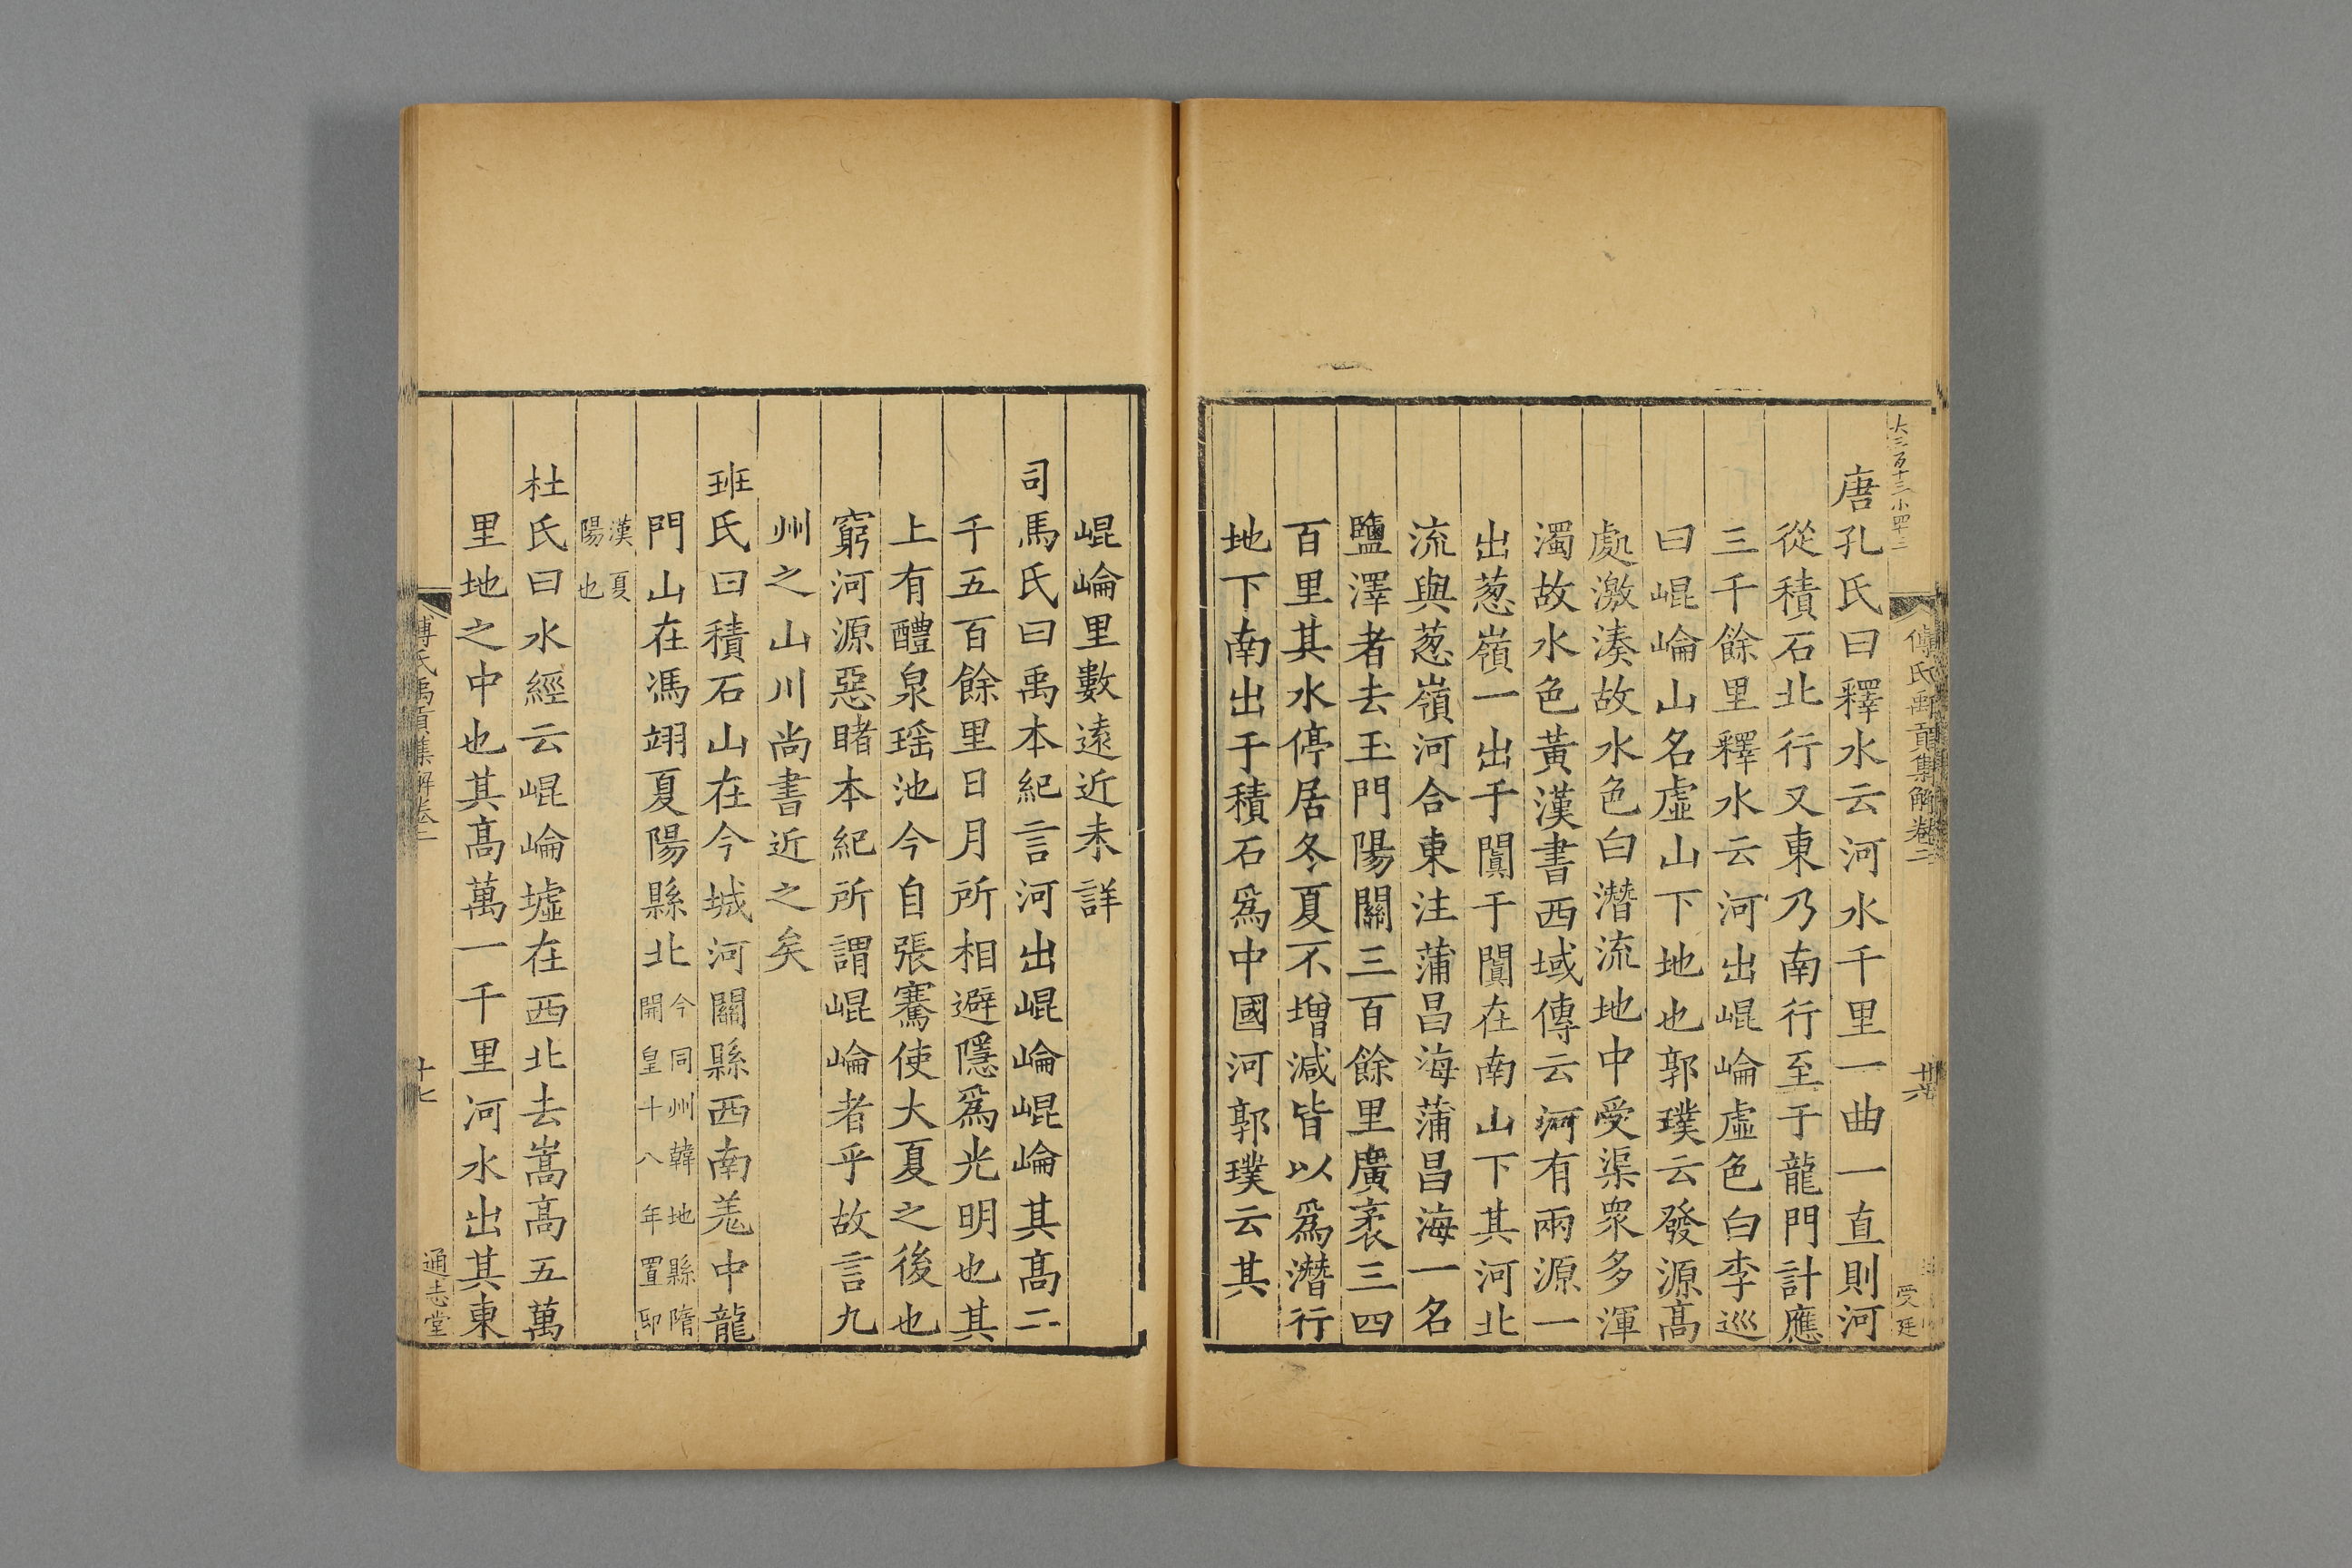 大三百十三小四十二
傅氏禹貢集解卷二
受廷
唐孔氏曰釋水云河水千里一曲一直則河
從積石北行又東乃南行至于龍門計應
三千餘里釋水云河出崐崘虛色白李巡
曰崐崘山名虛山下地也郭璞云發源高
處激湊故水色白潛流地中受渠衆多渾
濁故水色黃漢書西域傳云河有兩源一
出葱嶺一出于闐于闐在南山下其河北
流與葱嶺河合東注蒲昌海蒲昌海一名
鹽澤者去玉門陽關三百餘里廣袤三四
百里其水停居冬夏不增減皆以爲潛行
地下南出于積石爲中國河郭璞云其
崐崘里數遠近未詳
司馬氏曰禹本紀言河出崐崘崐崘其高二
千五百餘里日月所相避隱爲光明也其
上有醴泉瑶池今自張騫使大夏之後也
窮河源惡睹本紀所謂崐崘者乎故言九
州之山川尚書近之矣
班氏曰積石山在今城河關縣西南羗中龍
門山在馮翊夏陽縣北今同州韓地縣隋開皇十八年置即
漢夏陽也
杜氏曰水經云崐崘墟在西北去嵩高五萬
里地之中也其高萬一千里河水出其東
傅氏禹貢集解卷二
十七
通志堂